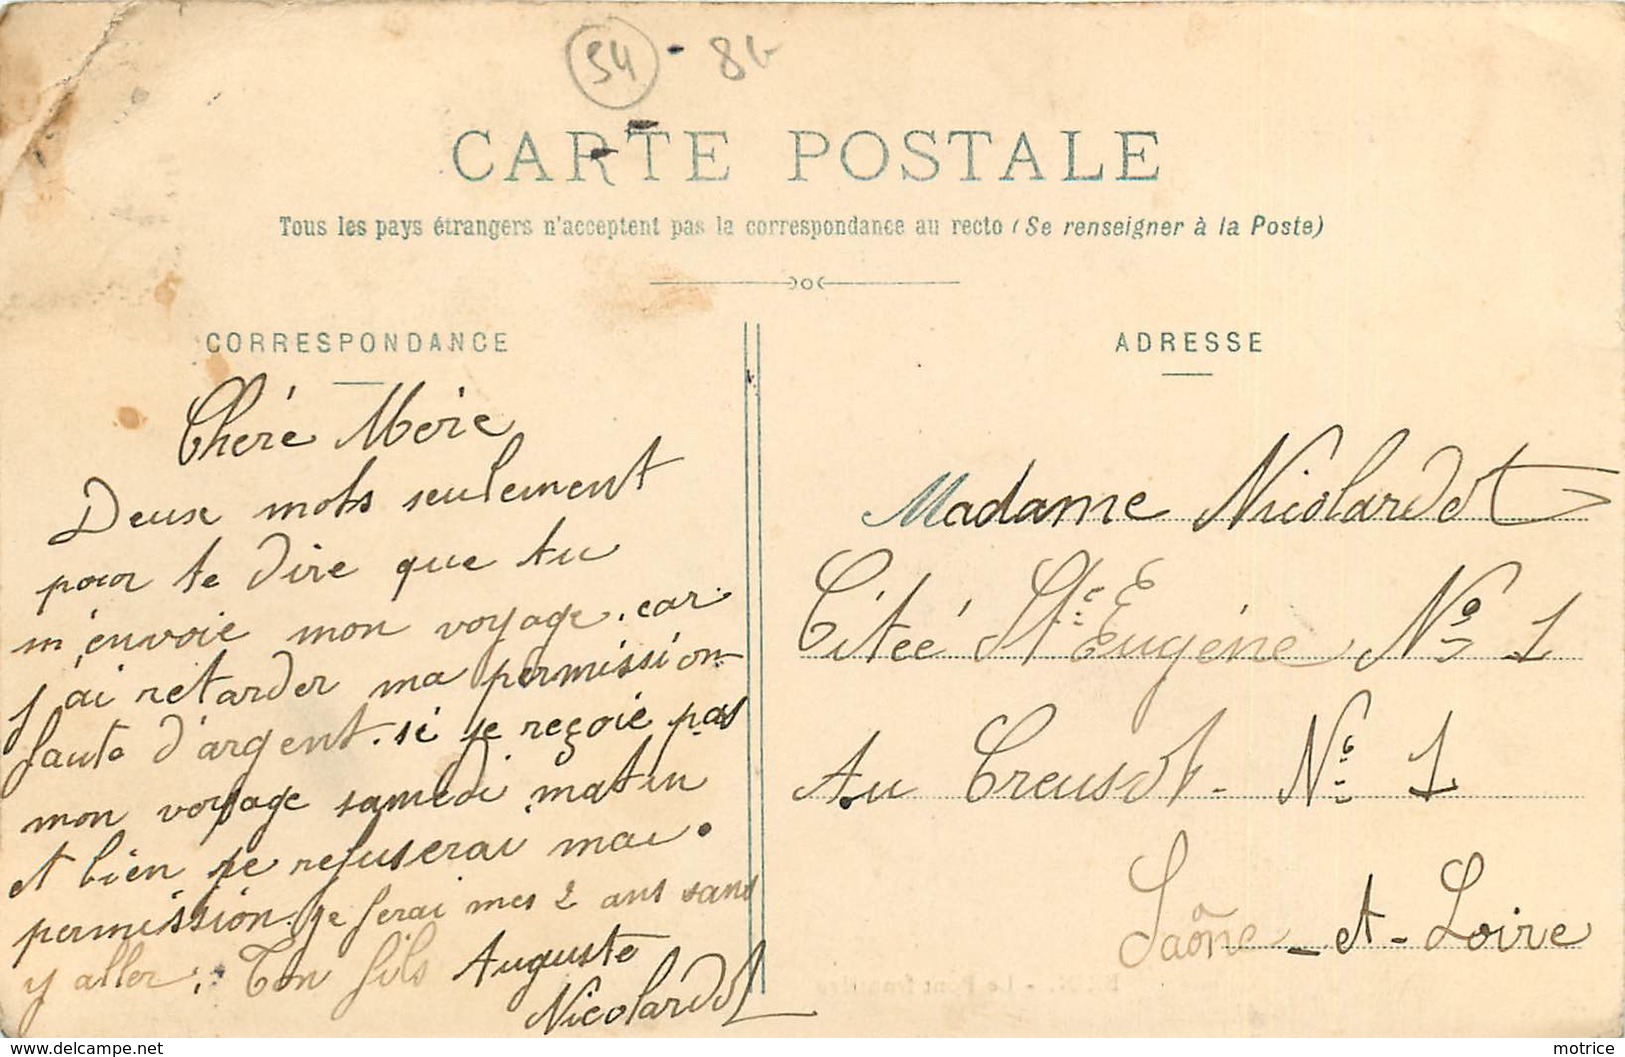 54 - 8b
CARTE POSTALE
Tous les pays étrangers n'acceptent pas la correspondance au recto (Se renseigner à la Poste)
CORRESPONDANCE
Cheré Mére
Deux mots seulement
pour te dire que tu
m'envoie mon voyage. car.
j'ai retarder ma permission
faute d'argent. si je reçoie pas
mon voyage samedi matin
et bien je refuserai ma
permission. je ferai mes 2 ans sans
y aller. Ton fils Auguste
Nicolardot
ADRESSE
Madame Nicolardot
Citée St Eugéne No 1
Au Creusot - No 1
Saône - et - Loire
Le Pont
motrice